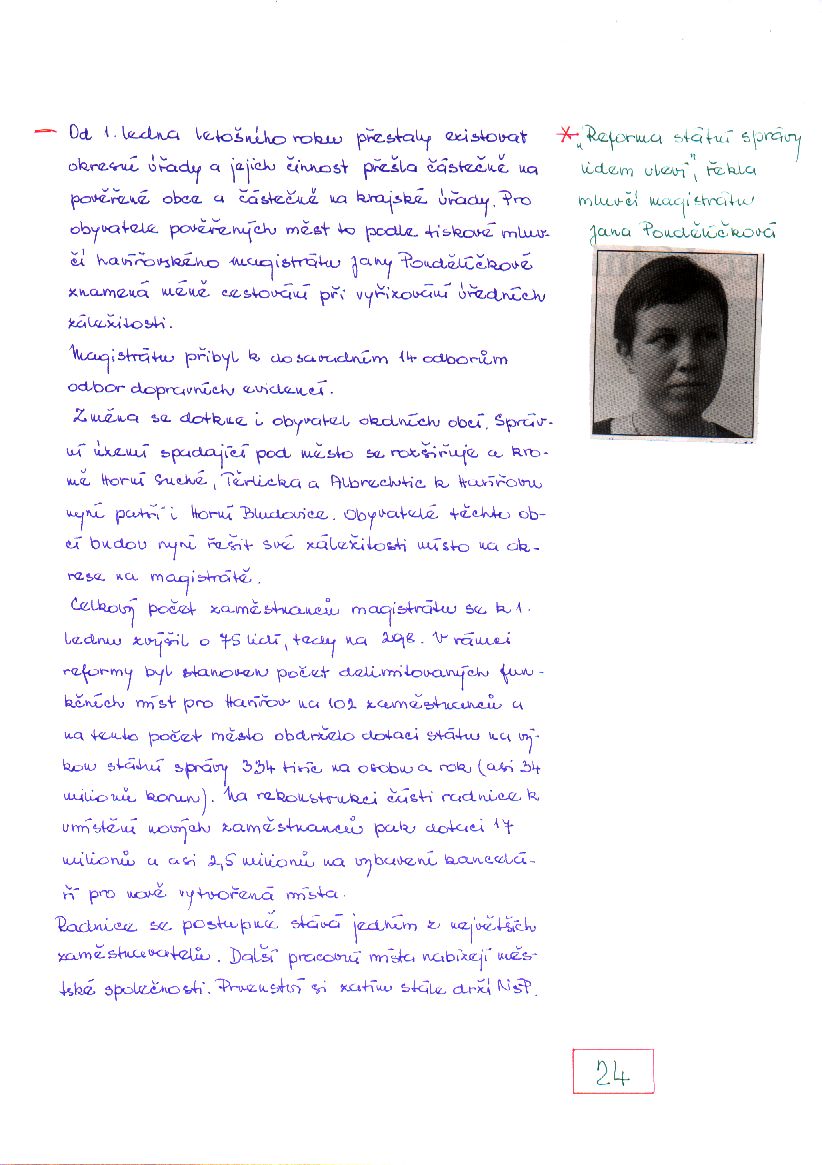 — Od 1. ledna letošního roku přestaly existovat
okresní úřady a jejich činnost přešla částečně na
pověřené obce a částečně na krajské úřady. Pro
obyvatele pověřených měst to podle tiskové mluv-
čí havířovského magistrátu Jany Pondělíčkové
znamená méně cestování při vyřizování úředních
záležitostí.
Magistrátu přibyl k dosavadním 14 odborům
odbor dopravních evidencí.
Změna se dotkne i obyvatel okolních obcí. Správ-
ní území spadající pod město se rozšiřuje a kro-
mě Horní Suché, Těrlicka a Albrechtic k Havířovu
nyní patří i Horní Bludovice. Obyvatelé těchto ob-
cí budou nyní řešit své záležitosti místo na ok-
rese na magistrátě.
Celkový počet zaměstnanců magistrátu se k 1.
lednu zvýšil o 75 lidí, tedy na 298. V rámci
reformy byl stanoven počet delimitovaných fun-
kčních míst pro Havířov na 102 zaměstnanců a
na tento počet město obdrželo dotaci státu na vý-
kon státní správy 334 tisíc na osobu a rok (asi 34
milionů korun). Na rekonstrukci části radnice k
umístění nových zaměstnanců pak dotaci 17
milionů a asi 2,5 milionů na vybavení kancelá-
ří pro nově vytvořená místa.
Radnice se postupně stává jedním z největších
zaměstnavatelů. Další pracovní místa nabízejí měs-
tské společnosti. Prvenství si zatím stále drží NsP.
* „Reforma státní správy
lidem uleví", řekla
mluvčí magistrátu
Jana Pondělíčková
24